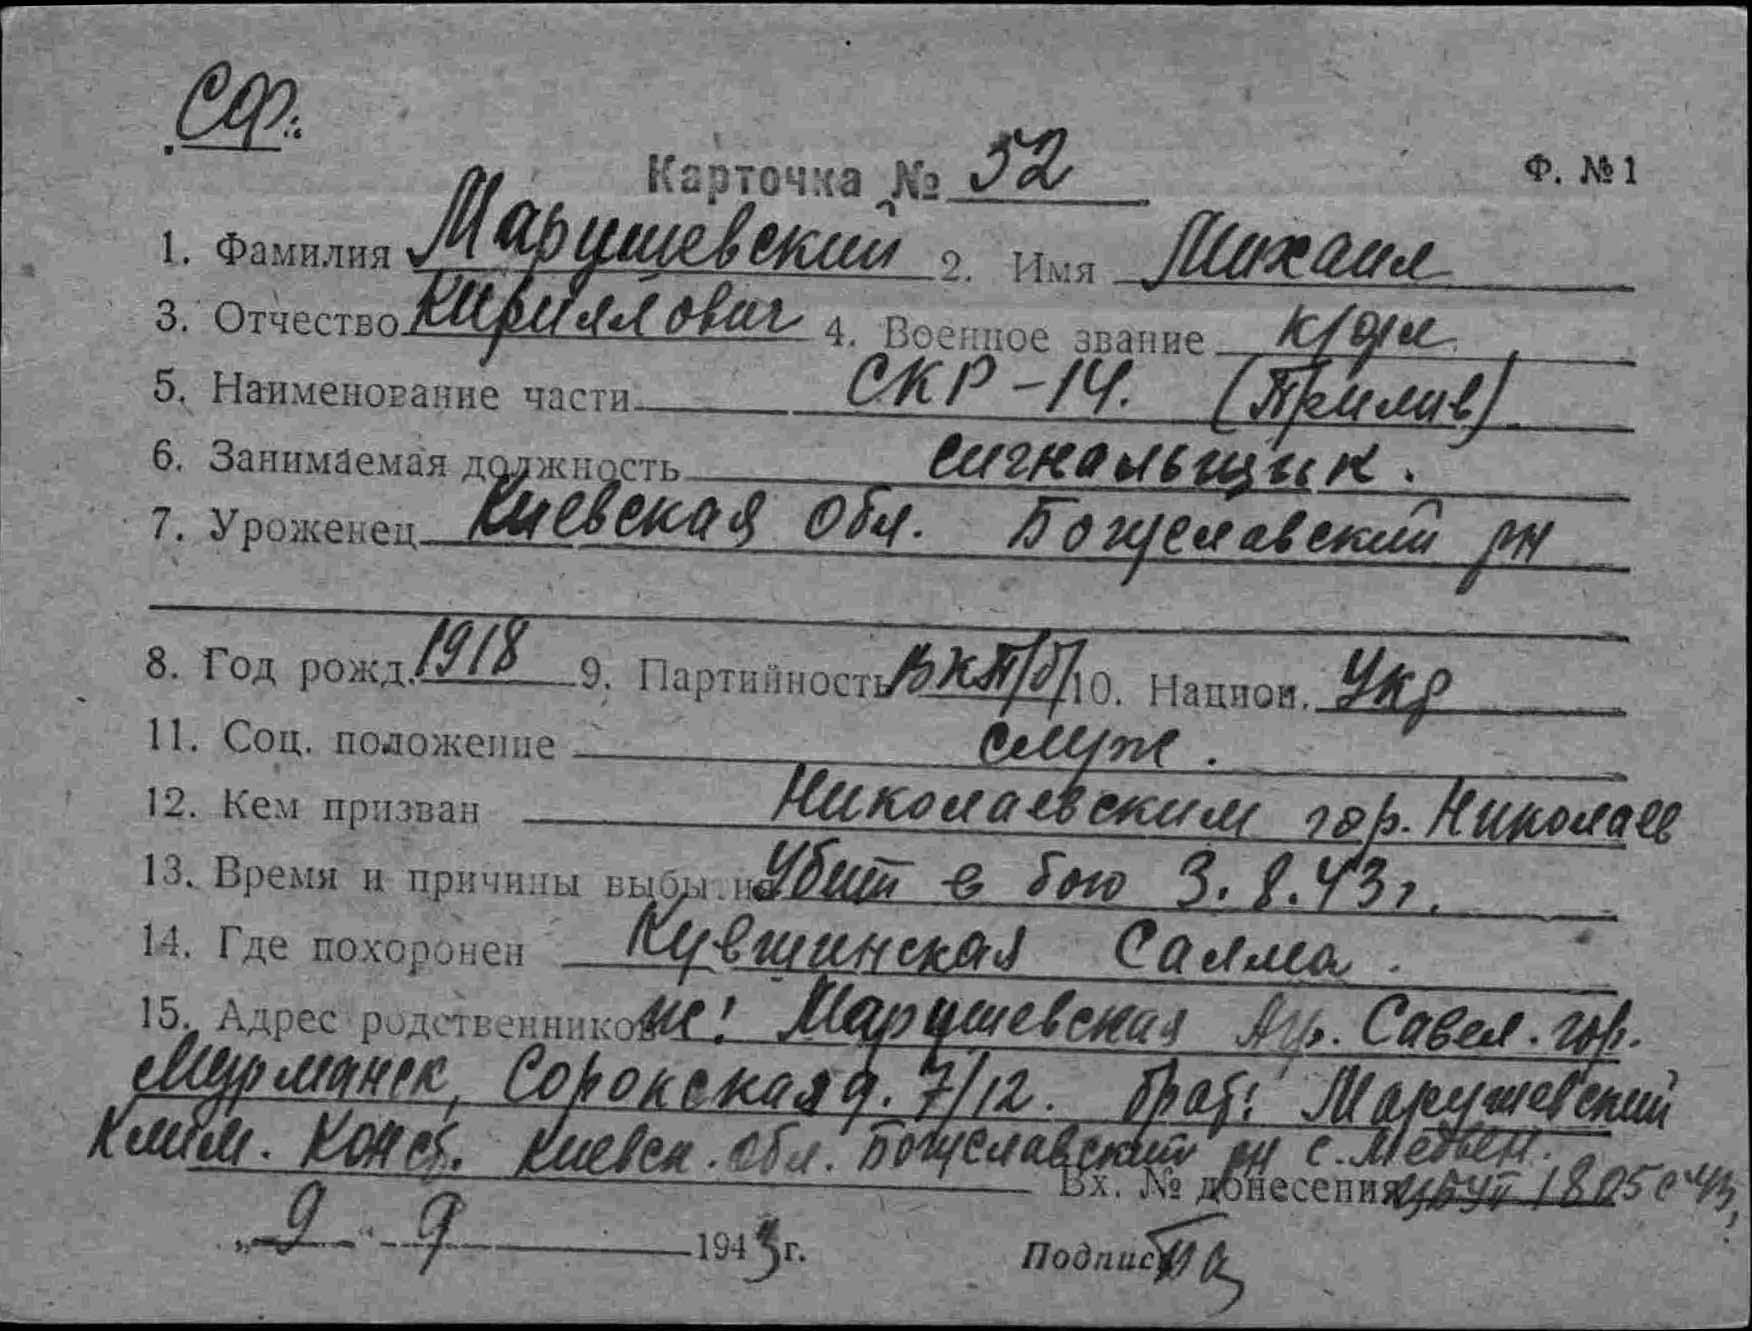 СФ.
Карточка № 52
Ф. № 1
1. Фамилия Марушевский 2. Имя Михаил
3. Отчество Кириллович 4. Военное звание к/фл.
5. Наименование части СКР-14. (Прилив)
6. Занимаемая должность сигнальщик.
7. Уроженец Киевская обл. Богуславский рн
8. Год рожд. 1918 9. Партийность ВКП/б/ 10. Национ. Укр
11. Соц. положение служ.
12. Кем призван Николаевским гор. Николаев
13. Время и причины выбытия Убит в бою 3.8.43г.
14. Где похоронен Кувшинская Салма.
15. Адрес родственников Марушевская Савел. гор.
Мурманск, Сорокская д. 7/12. брат: Марушевский
Клим. Конст. Киевск. обл. Богуславский рн с.
Вх. № донесения 1805с 43
„ 9 “ 9 1943 г. Подпись